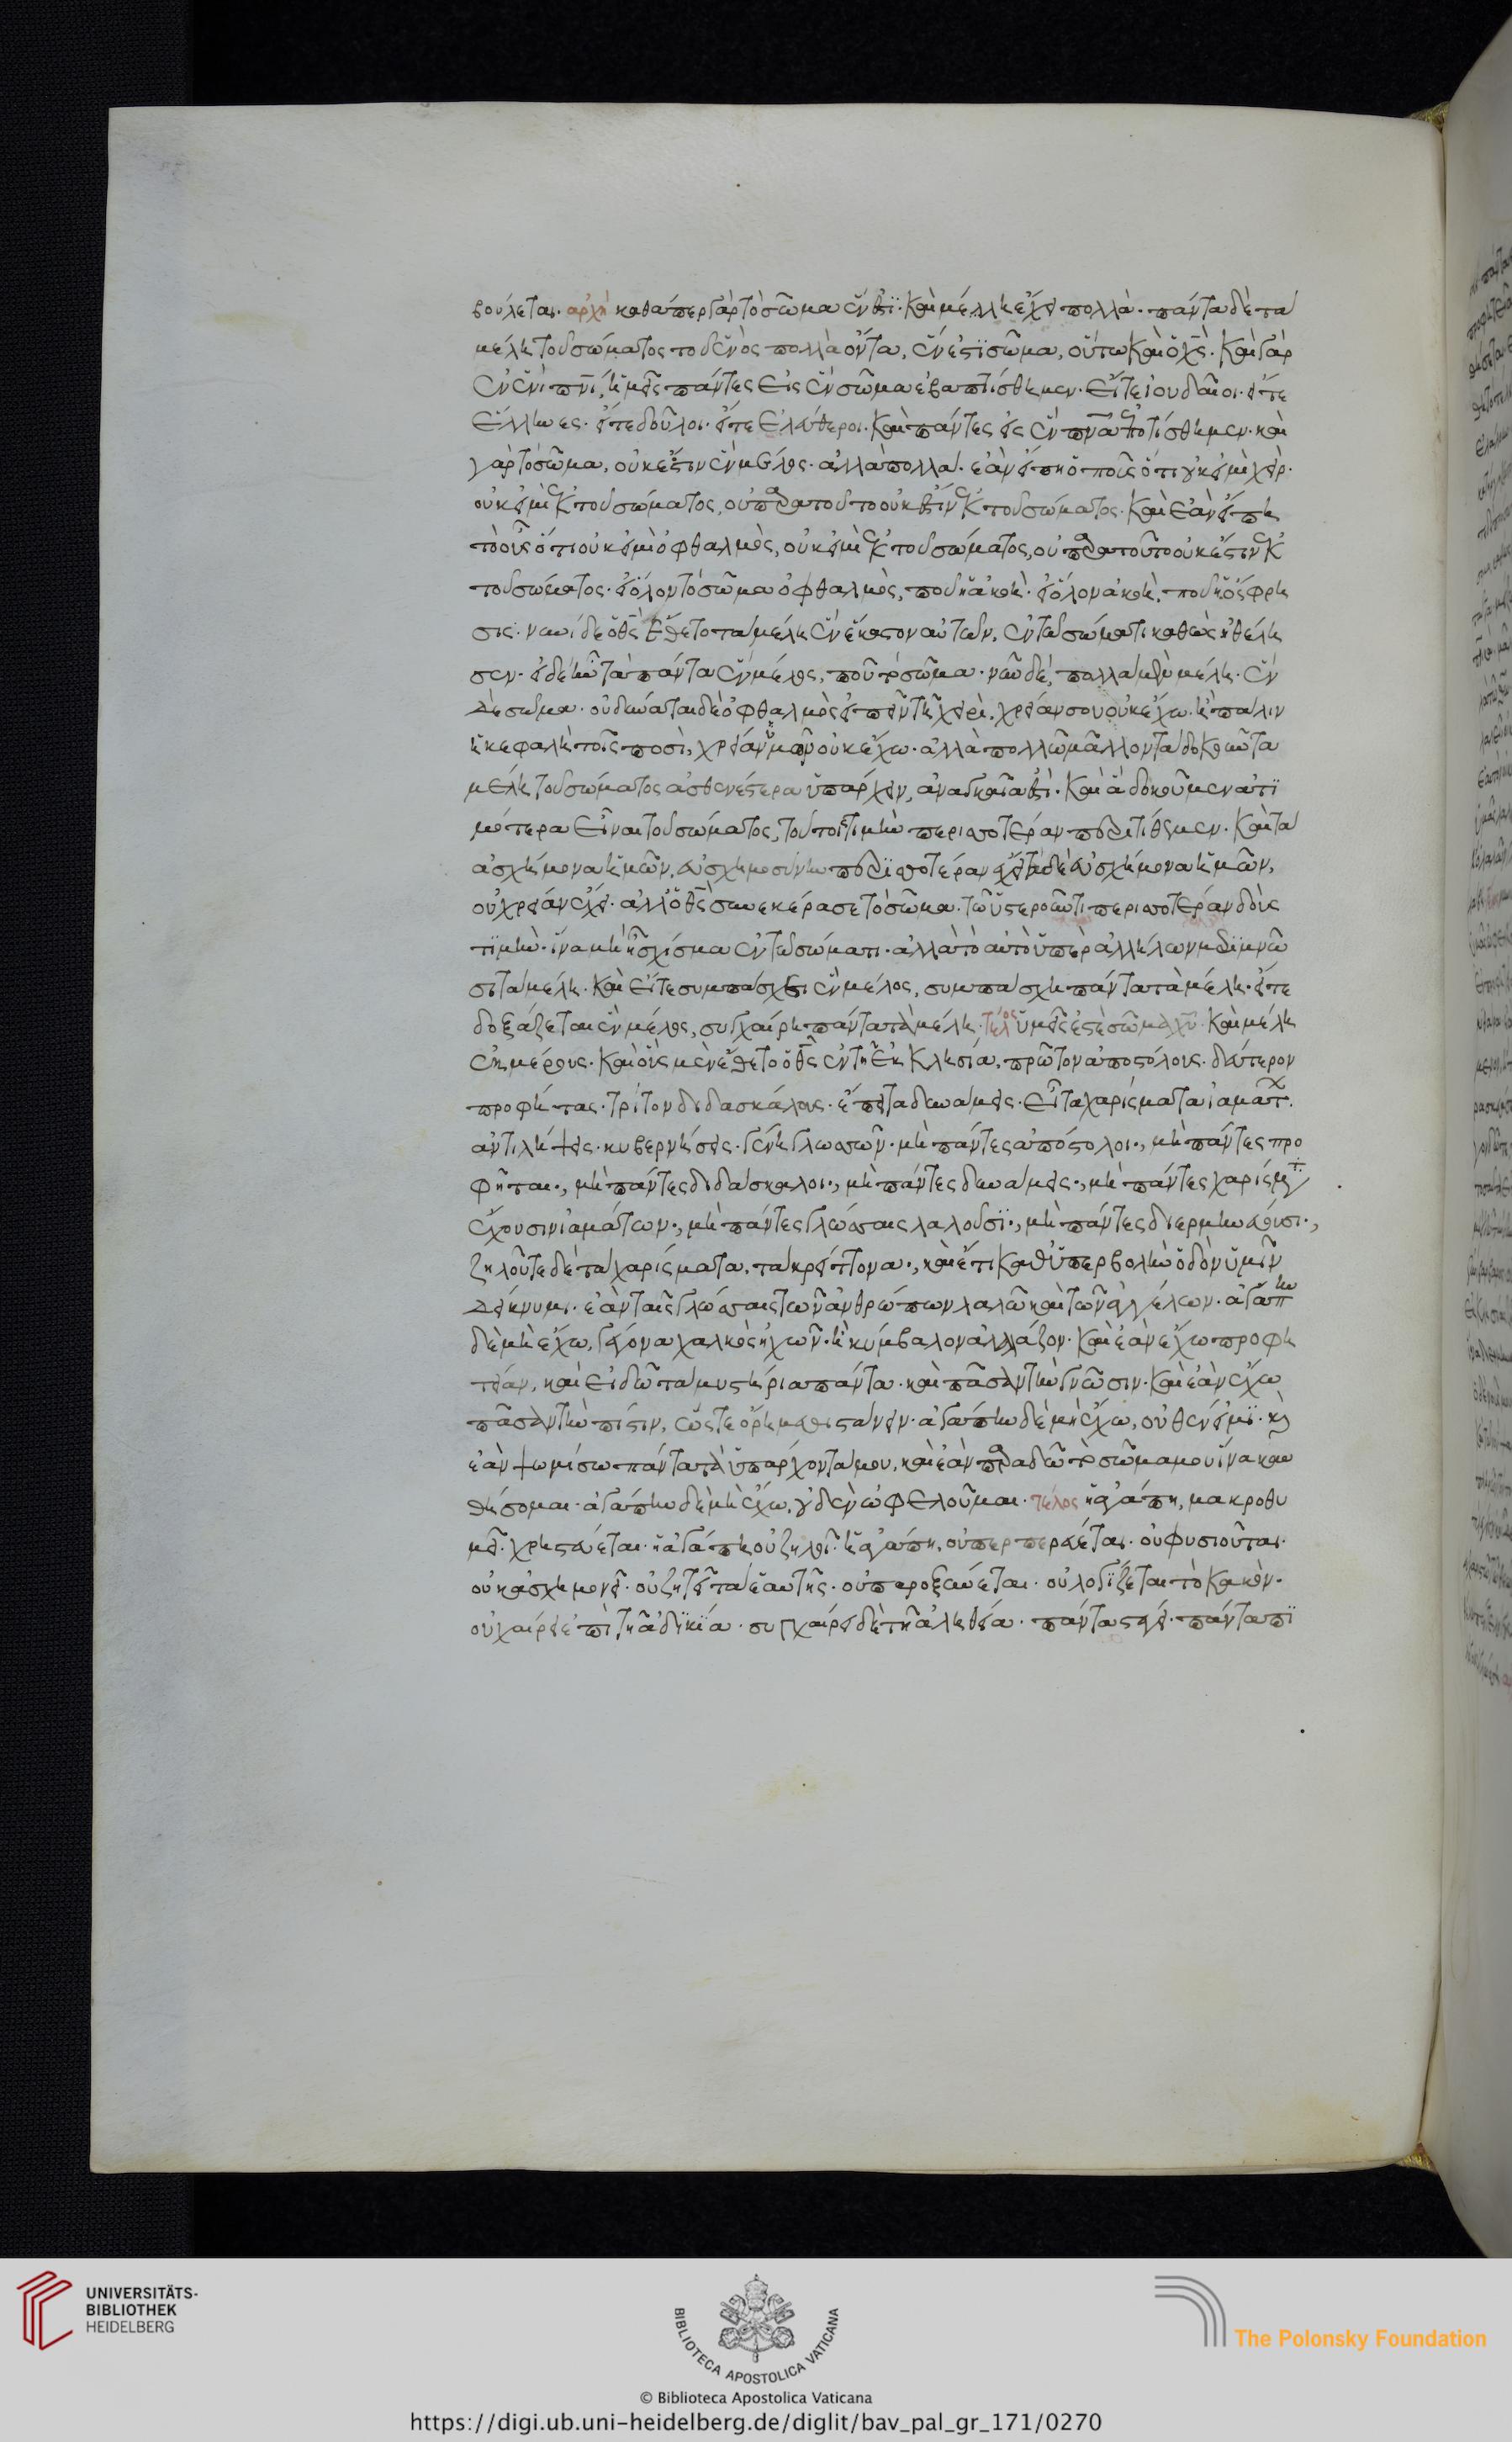 βούλεται· αρχὴ καθάπερ γὰρ τὸ σῶμα ἕν ἐστὶ· καὶ μέλλη ἔχει πολλὰ· πάντα δὲ τὰ
μέλη τοῦ σώματος τοῦ ἑνὸς πολλὰ ὄντα, ἕν ἐστὶ σῶμα, οὕτω καὶ ὁ χ̅ς̅· καὶ γὰρ
ἐν ἑνὶ π̅ν̅ι̅, ἡμεῖς πάντες εἰς ἓν σῶμα ἐβαπτίσθημεν· εἴτε ἰουδαῖοι· εἴτε
ἕλληνες· εἴτε δοῦλοι· εἴτε ἐλεύθεροι· καὶ πάντες εἰς ἓν π̅ν̅α̅ ἐποτίσθημεν· καὶ
γὰρ τὸ σῶμα, οὐκ ἔστιν ἓν μέλος· ἀλλὰ πολλά· ἐὰν εἴπη ὁ ποῦς ὅτι οὐκ εἰμὶ χεὶρ·
οὐκ εἰμὶ ἐκ τοῦ σώματος, οὐ παρὰ τοῦτο οὐκ ἔστιν ἐκ τοῦ σώματος· καὶ ἐὰν εἴπη
τὸ οὖς ὅτι οὐκ εἰμὶ ὀφθαλμὸς, οὐκ εἰμὶ ἐκ τοῦ σώματος, οὐ παρὰ τοῦτο οὐκ ἔστιν ἐκ
τοῦ σώματος· εἰ ὅλον τὸ σῶμα ὀφθαλμὸς, ποῦ ἡ ἀκοὴ· εἰ ὅλον ἀκοὴ, ποῦ ἡ ὄσφρη
σις· νυνὶ δὲ ὁ θ̅ς̅ ἔθετο τὰ μέλη ἓν ἕκαστον αὐτῶν, ἐν τῶ σώματι καθὼς ἠθέλη
σεν· εἰ δὲ ἦν τὰ πάντα ἓν μέλος, ποῦ τὸ σῶμα· νῦν δὲ, πολλὰ μὲν μέλη· ἓν
δὲ σῶμα· οὐ δύναται δὲ ὀφθαλμὸς εἰπεῖν τῆ χειρὶ, χρείαν σου οὐκ ἔχω· ἢ πάλιν
ἡ κεφαλὴ τοῖς ποσὶ, χρείαν ὑμῶν οὐκ ἔχω· ἀλλὰ πολλῶ μᾶλλον τὰ δοκοῦντα
μέλη τοῦ σώματος ἀσθενέστερα ὑπάρχειν, ἀναγκαῖα ἐστὶ· καὶ ἃ δοκοῦμεν ἀτι
μότερα εἶναι τοῦ σώματος, τούτοις τιμὴν περισσοτέραν περιτίθεμεν· καὶ τὰ
ἀσχήμονα ἡμῶν, εὐσχημοσύνην περισσοτέραν ἔχει τὰ δὲ εὐσχήμονα ἡμῶν,
οὐ χρείαν ἔχει· ἀλλ ὁ θ̅ς̅ συνεκέρασε τὸ σῶμα· τῶ ὑστεροῦντι περισσοτέραν δοὺς
τιμὴν· ἵνα μὴ ἦ σχίσμα ἐν τῶ σώματι· ἀλλὰ τὸ αὐτὸ ὑπὲρ ἀλλήλων μεριμνῶ
σι τὰ μέλη· καὶ εἴτε συμπάσχει ἓν μέλος, συμπάσχη πάντα τὰ μέλη· εἴτε
δοξάζεται ἓν μέλος, συγχαίρη πάντα τὰ μέλη· τέλος ὑμεῖς ἐστὲ σῶμα χ̅υ̅· καὶ μέλη
ἐκ μέρους· καὶ οὓς μὲν ἔθετο ὁ θ̅ς̅ ἐν τῆ ἐκκλησία, πρῶτον ἀποστόλους· δεύτερον
προφήτας· τρίτον διδασκάλους· ἔπειτα δυνάμεις· εἶτα χαρίσματα ἰαμάτ·
ἀντιλήψεις· κυβερνήσεις· γένη γλωσσῶν· μὴ πάντες ἀπόστολοι·, μὴ πάντες προ
φῆται·, μὴ πάντες διδάσκαλοι·, μὴ πάντες δυνάμεις·, μὴ πάντες χαρίσμτ
ἔχουσιν ἰαμάτων·, μὴ πάντες γλώσσαις λαλοῦσι·, μὴ πάντες διερμηνεύουσι·,
ζηλοῦτε δὲ τὰ χαρίσματα, τὰ κρείττονα·, καὶ ἔτι καθ ὑπερβολὴν ὁδὸν ὑμῖν
δείκνυμι· ἐὰν ταῖς γλώσσαις τῶν ἀνθρώπων λαλῶ καὶ τῶν ἀγγέλων· ἀγάπην
δὲ μὴ ἔχω, γέγονα χαλκὸς ἠχῶν· ἢ κύμβαλον ἀλλάζον· καὶ ἐὰν ἔχω προφη
τείαν, καὶ εἰδῶ τὰ μυστήρια πάντα· καὶ πᾶσαν τὴν γνῶσιν· καὶ ἐὰν ἔχω
πᾶσαν τὴν πίστιν, ὥστε ὄρη μεθιστάνειν· ἀγάπην δὲ μὴ ἔχω, οὐθέν εἰμι· κ̀
ἐὰν ψωμίσω πάντα τὰ ὑπάρχοντα μου, καὶ ἐὰν παραδῶ τὸ σῶμα μου ἵνα καυ
θήσομαι· ἀγάπην δὲ μὴ ἔχω, οὐδὲν ὠφελοῦμαι· τέλος ἡ ἀγάπη, μακροθυ
μεῖ· χρηστεύεται· ἡ ἀγάπη οὐ ζηλοῖ· ἡ ἀγάπη, οὐ περπερεύεται· οὐ φυσιοῦται·
οὐκ ἀσχημονεῖ· οὐ ζητεῖ τὰ ἑαυτῆς· οὐ παροξύνεται· οὐ λογίζεται τὸ κακὸν·
οὐ χαίρει ἐπὶ τῆ ἀδικία· συγχαίρει δὲ τῆ ἀληθεία· πάντα στέγει· πάντα πι
UNIVERSITÄTS-
BIBLIOTHEK
HEIDELBERG
BIBLIOTECA APOSTOLICA VATICANA
The Polonsky Foundation
© Biblioteca Apostolica Vaticana
https://digi.ub.uni-heidelberg.de/diglit/bav_pal_gr_171/0270